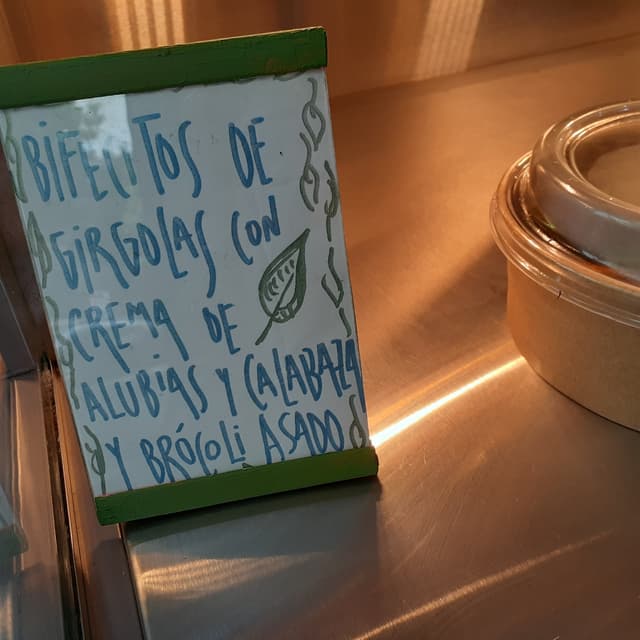 BIFECITOS DE
GÍRGOLAS CON
CREMA DE
ALUBIAS Y CALABAZA
Y BRÓCOLI ASADO